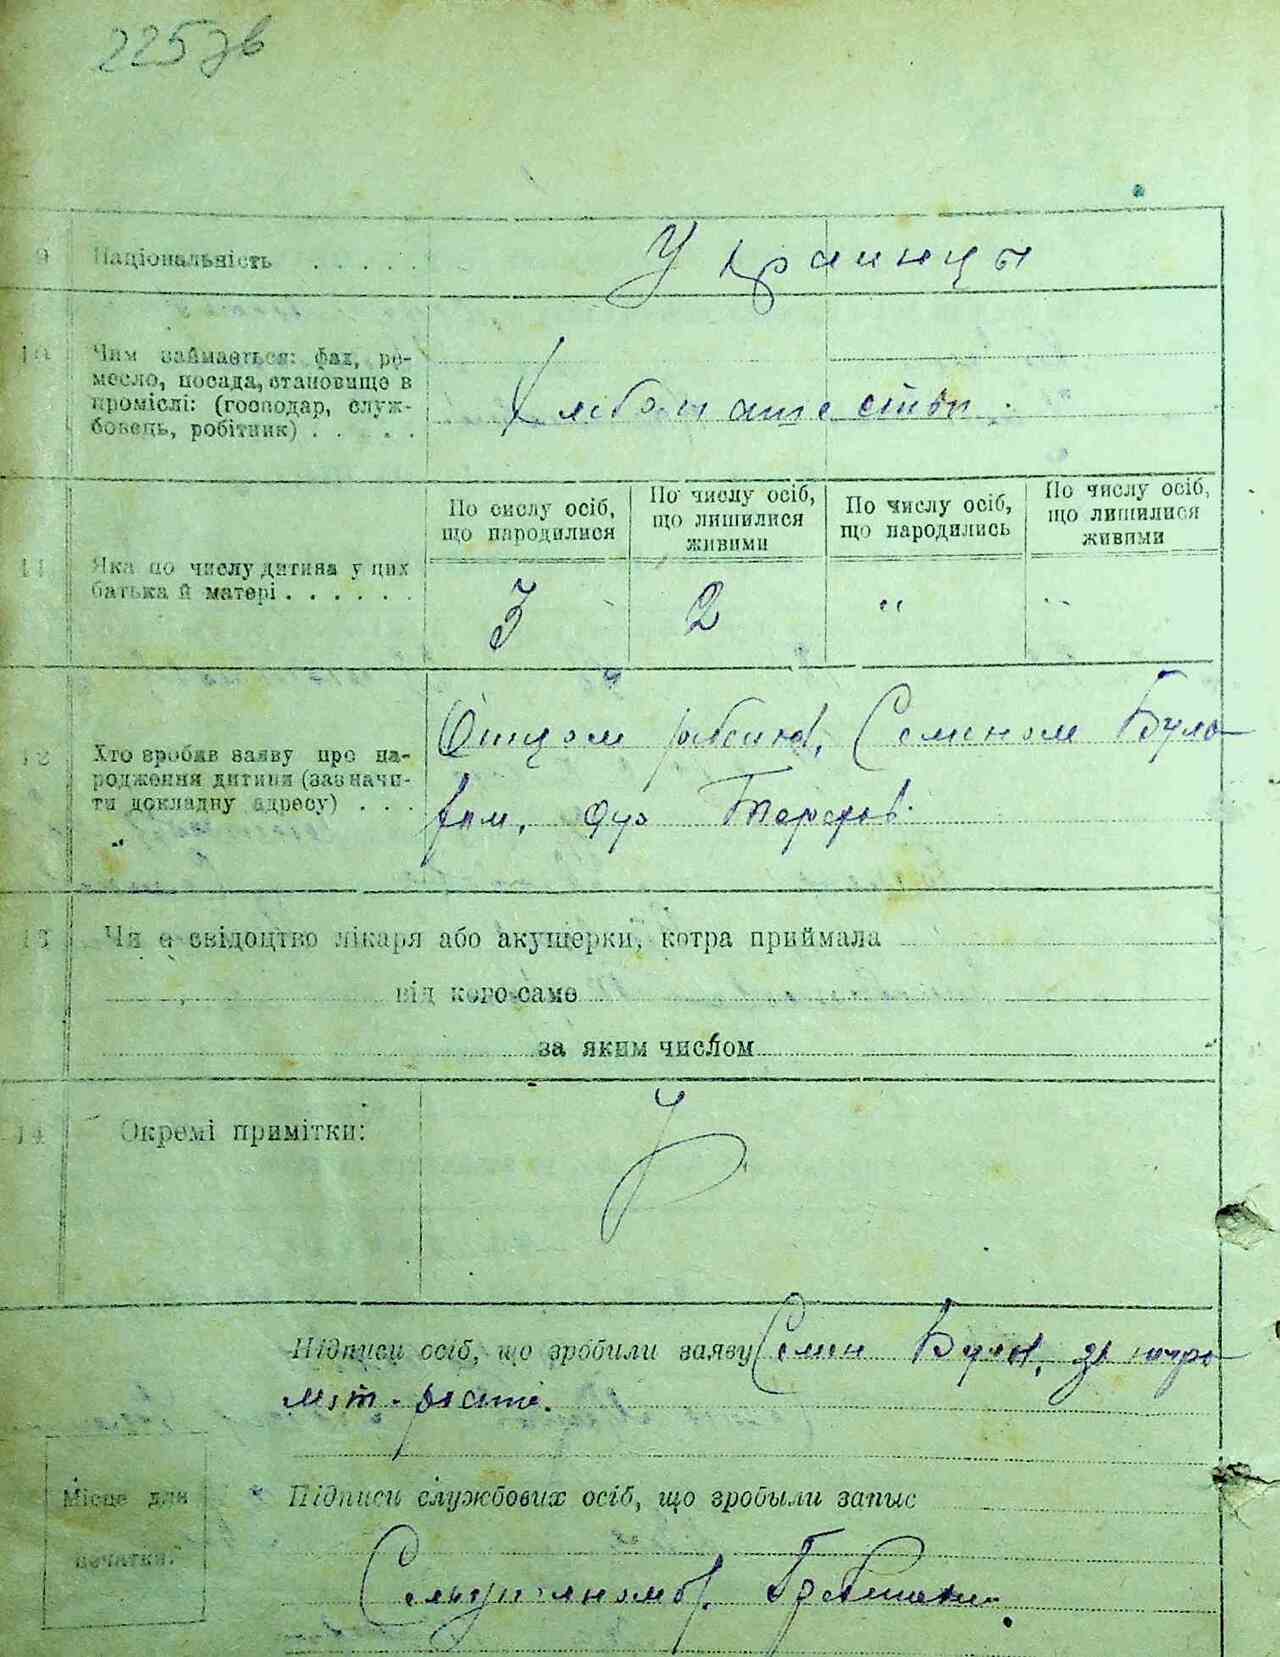 225 зв
9 Національність . . . . . Украинцы
10 Чим займається: фах, ре-
месло, посада, становище в
проміслі: (господар, служ-
бовець, робітник) . . . . . Хлебопашество.
По числу осіб, що народилися
По числу осіб, що лишилися живими
По числу осіб, що народились
По числу осіб, що лишилися живими
11 Яка по числу дитина у цих
батька й матері . . . . . . 3 2 " "
12 Хто зробив заяву про на-
родження дитини (зазначи-
ти докладну адресу) . . .
Отцом ребенка, Семеном
13 Чи є свідоцтво лікаря або акушерки, котра приймала
від кого саме
за яким числом
14 Окремі примітки:
Підписи осіб, що зробили заяву Семен
Місце для
печатки.
Підписи службових осіб, що зробыли запыс